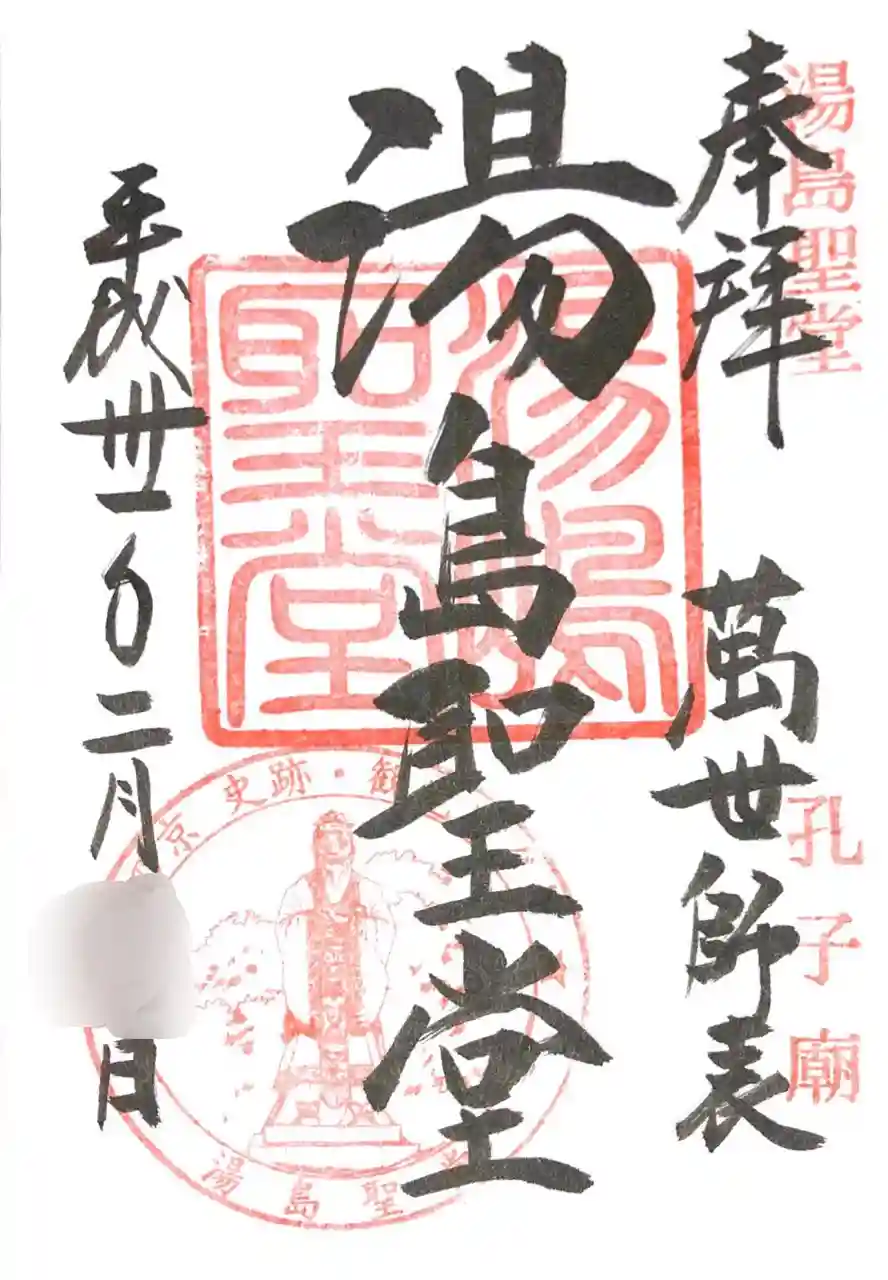 湯島聖堂
孔子廟
奉拝
萬世師表
湯島聖堂
湯島聖堂
平成卅一年二月
日
京 史跡・観
湯島聖堂